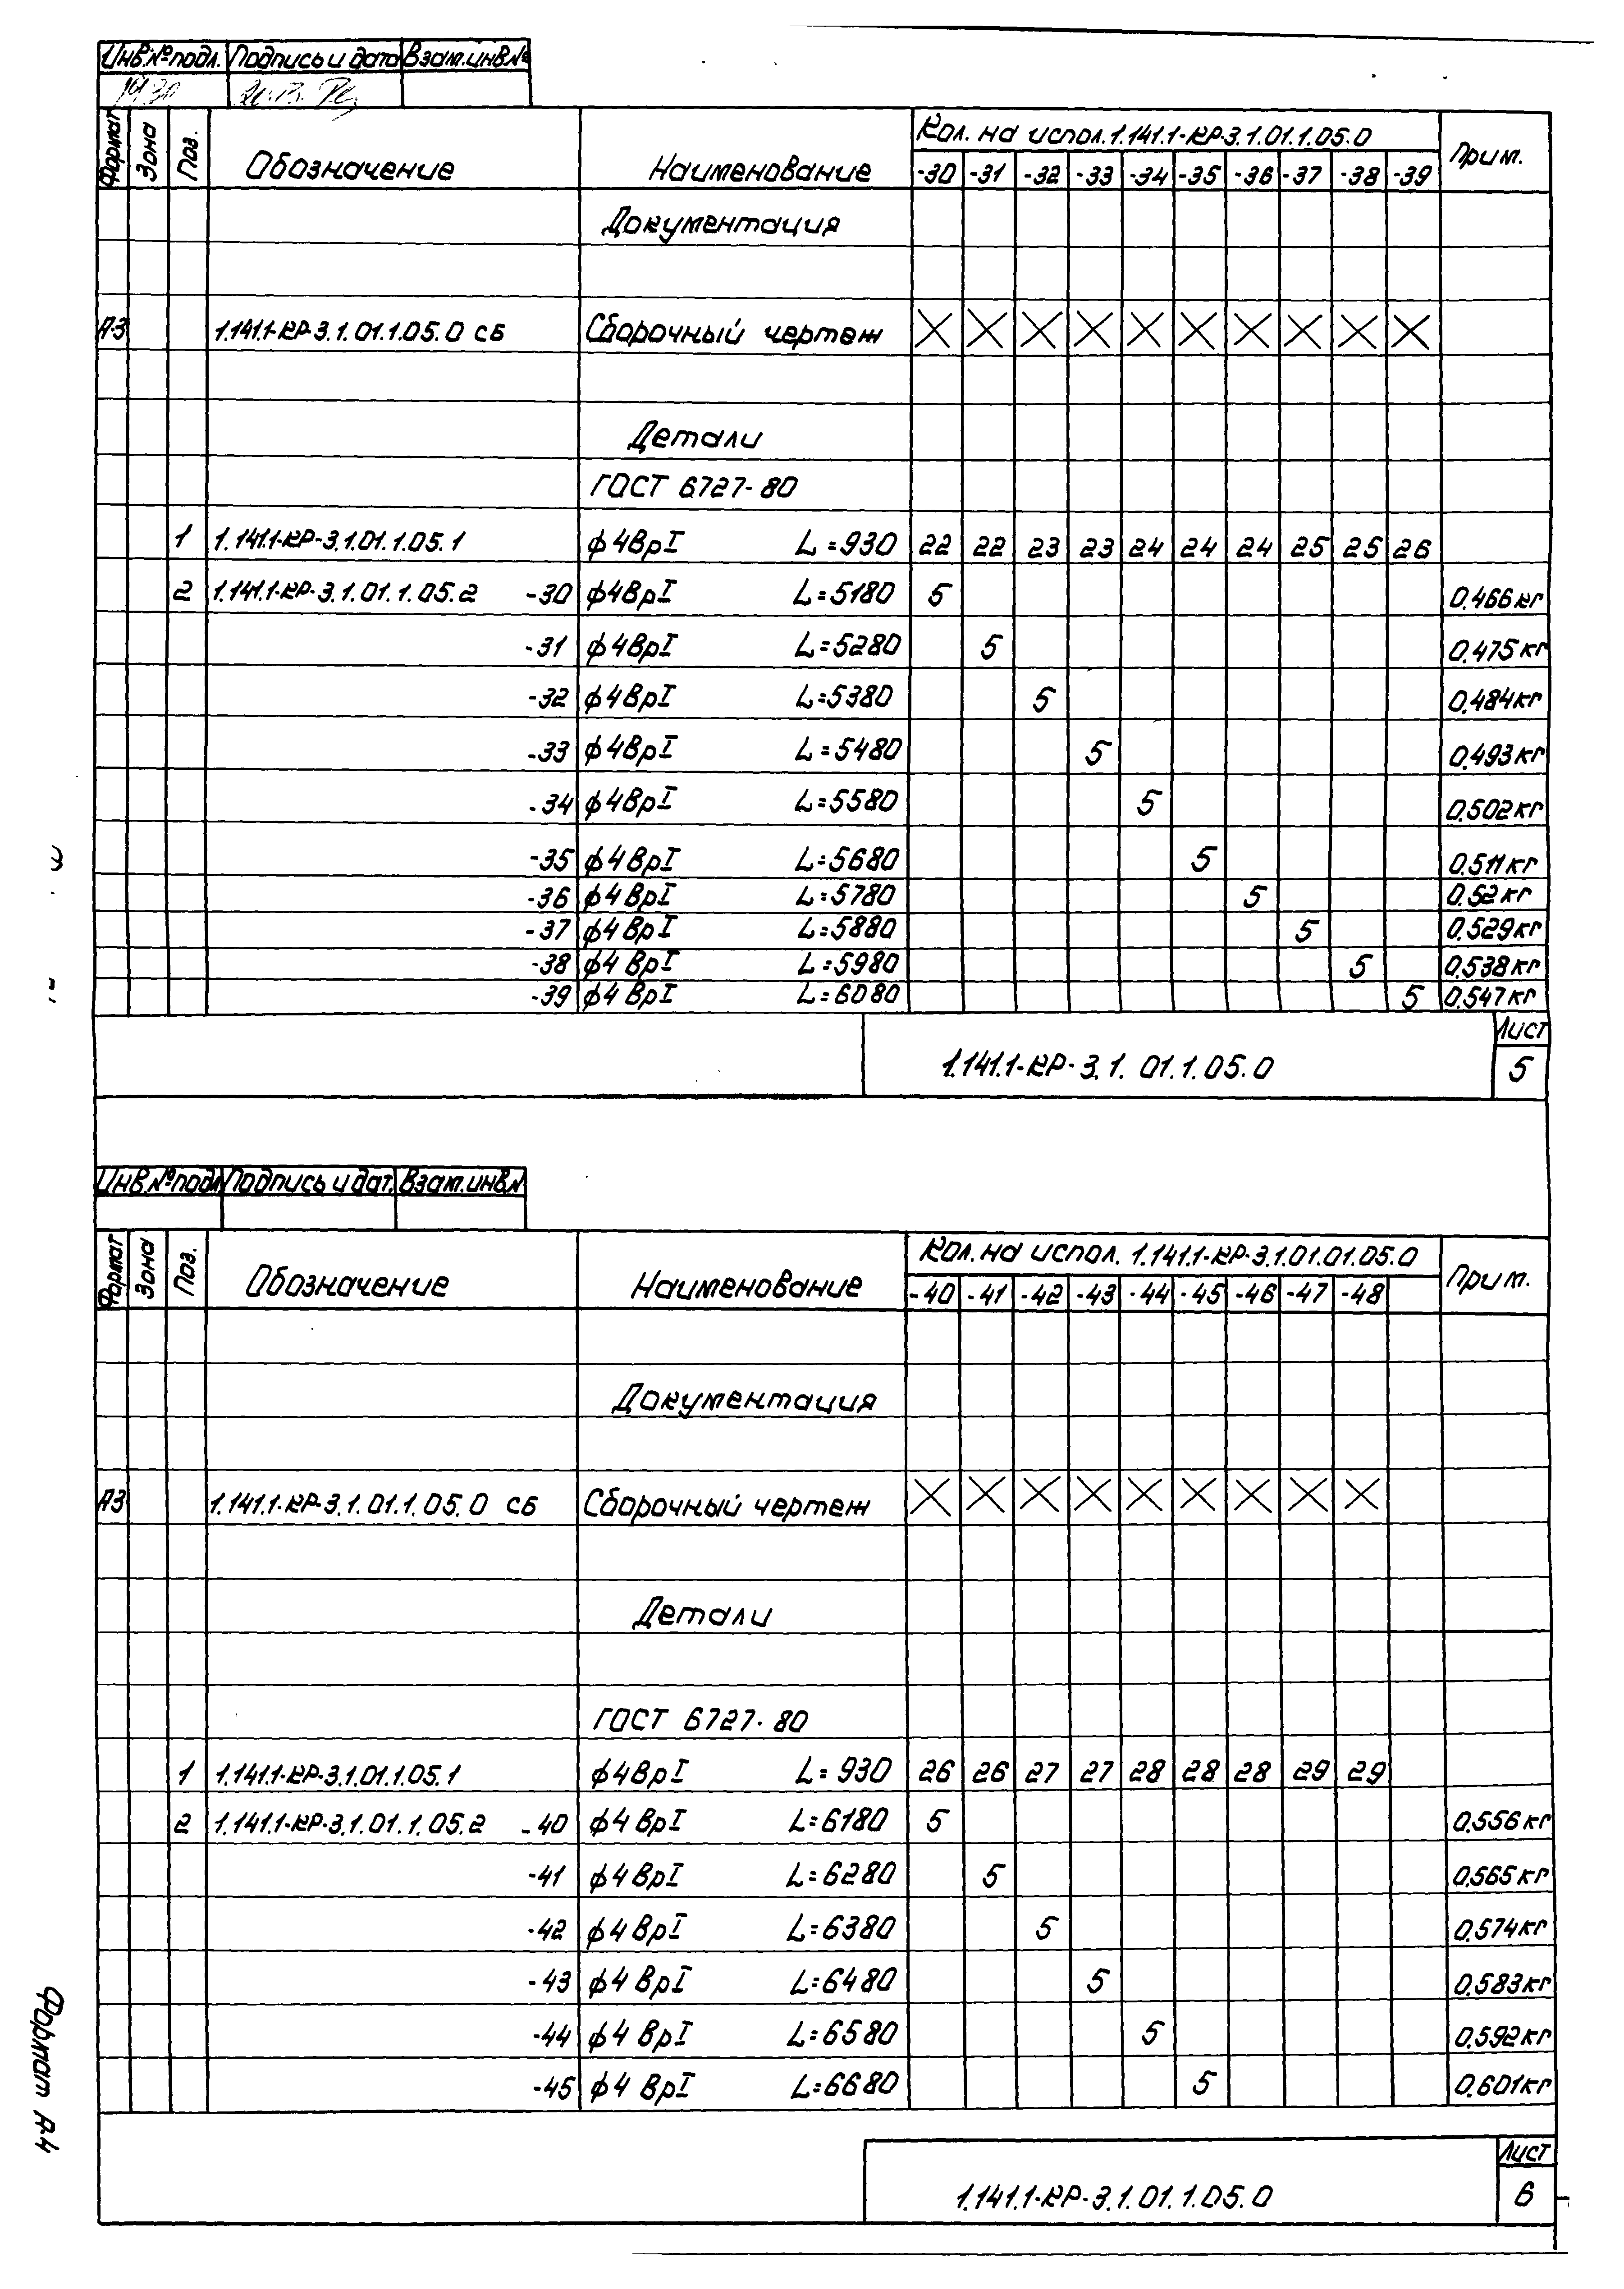 Инв.№подл. Подпись и дата Взам.инв.№
Формат Зона Поз. Обозначение Наименование Кол. на испол. 1.141.1-КР-3.1.01.1.05.0 Прим.
-30 -31 -32 -33 -34 -35 -36 -37 -38 -39
Документация
А3 1.141.1-КР-3.1.01.1.05.0 СБ Сборочный чертеж X X X X X X X X X X
Детали
ГОСТ 6727-80
1 1.141.1-КР-3.1.01.1.05.1 ф4ВрI L=930 22 22 23 23 24 24 24 25 25 26
2 1.141.1-КР-3.1.01.1.05.2 -30 ф4ВрI L=5180 5 0.466кг
-31 ф4ВрI L=5280 5 0.475кг
-32 ф4ВрI L=5380 5 0.484кг
-33 ф4ВрI L=5480 5 0.493кг
-34 ф4ВрI L=5580 5 0.502кг
-35 ф4ВрI L=5680 5 0.511кг
-36 ф4ВрI L=5780 5 0.52кг
-37 ф4ВрI L=5880 5 0.529кг
-38 ф4ВрI L=5980 5 0.538кг
-39 ф4ВрI L=6080 5 0.547кг
1.141.1-КР-3.1.01.1.05.0 Лист
5
Инв.№подл Подпись и дат. Взам.инв.№
Формат Зона Поз. Обозначение Наименование Кол. на испол. 1.141.1-КР-3.1.01.01.05.0 Прим.
-40 -41 -42 -43 -44 -45 -46 -47 -48
Документация
А3 1.141.1-КР-3.1.01.1.05.0 СБ Сборочный чертеж X X X X X X X X X
Детали
ГОСТ 6727-80
1 1.141.1-КР-3.1.01.1.05.1 ф4ВрI L=930 26 26 27 27 28 28 28 29 29
2 1.141.1-КР-3.1.01.1.05.2 -40 ф4ВрI L=6180 5 0.556кг
-41 ф4ВрI L=6280 5 0.565кг
-42 ф4ВрI L=6380 5 0.574кг
-43 ф4ВрI L=6480 5 0.583кг
-44 ф4ВрI L=6580 5 0.592кг
-45 ф4ВрI L=6680 5 0.601кг
1.141.1-КР-3.1.01.1.05.0 Лист
6
Формат А4